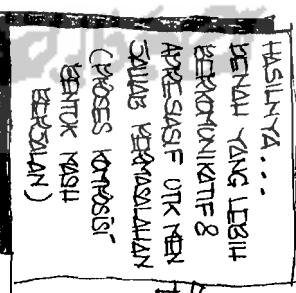 HASILNYA...
DENAH YANG LEBIH
BERKOMUNIKATIF &
APRESIASIF UTK MEN
JAWAB PERMASALAHAN
(PROSES KOMPOSISI
BENTUK MASIH
BERJALAN)